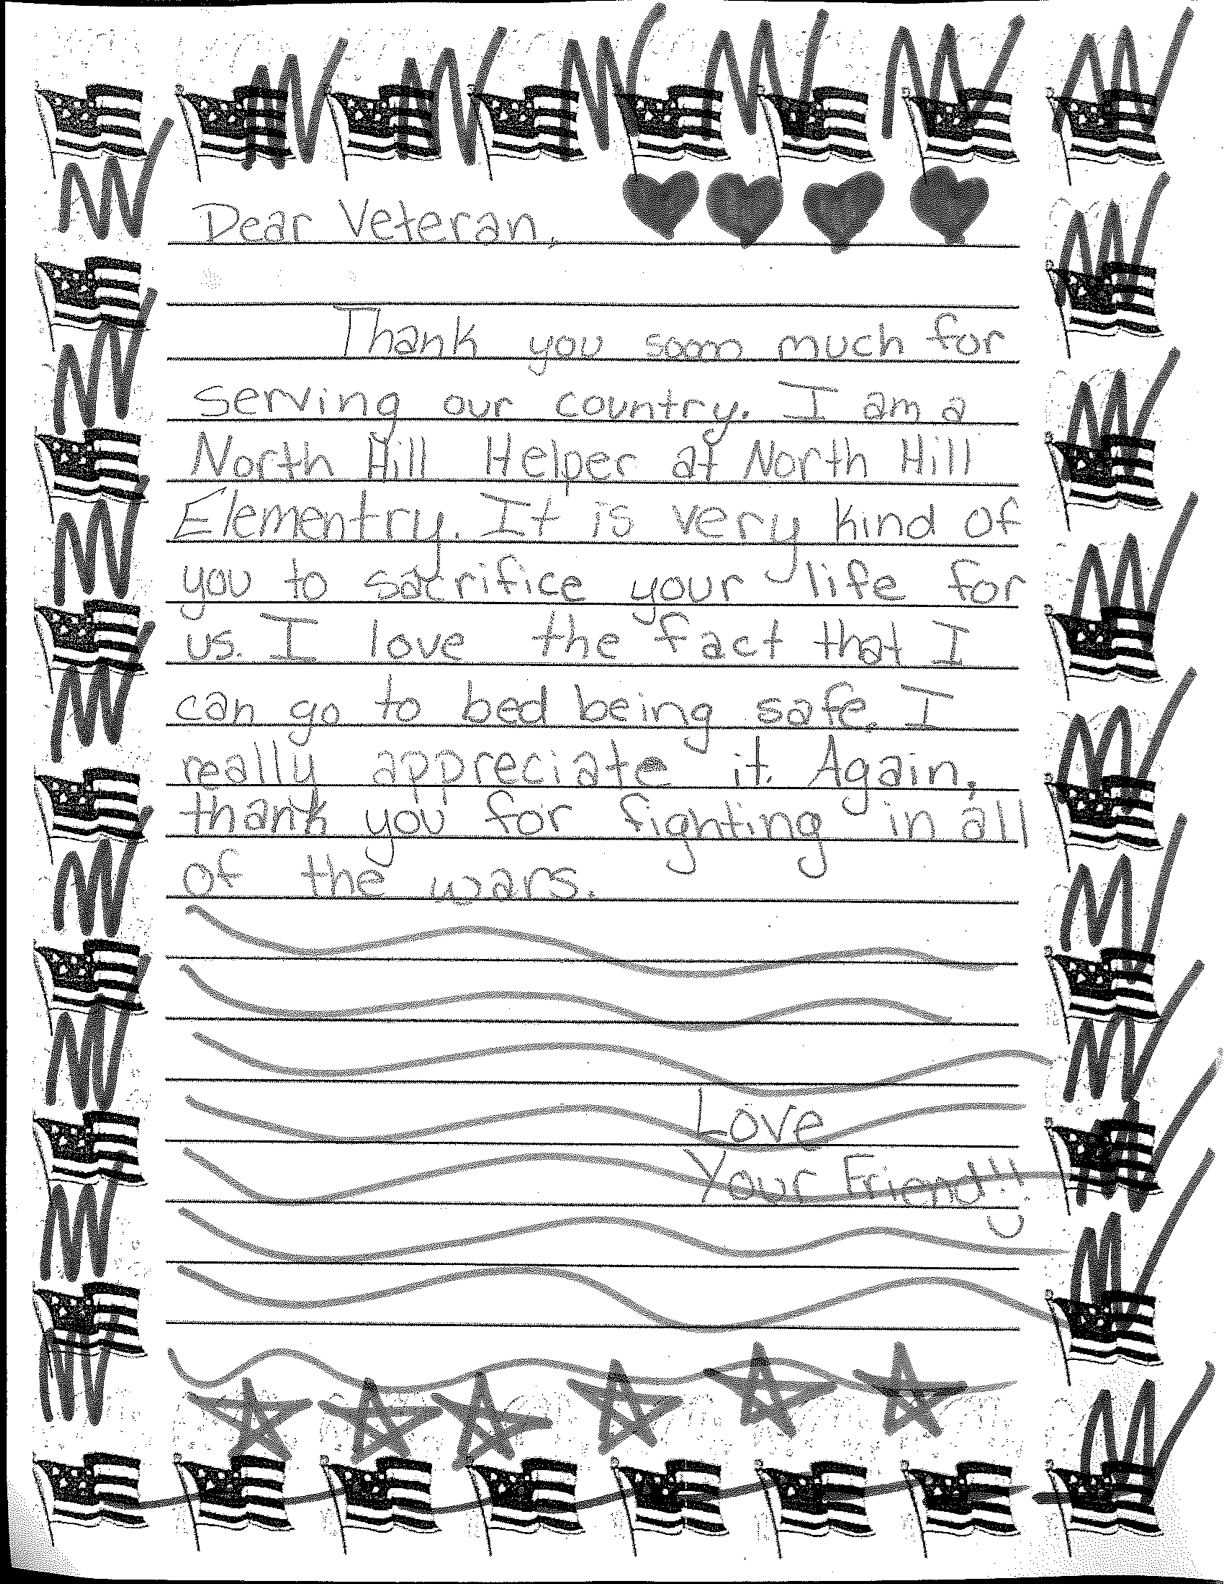 Dear Veteran,
Thank you sooooo much for
serving our country. I am a
North Hill Helper at North Hill
Elementry. It is very kind of
you to sacrifice your life for
us. I love the fact that I
can go to bed being safe. I
really appreciate it. Again,
thank you for fighting in all
of the wars.
Love
Your Friend!!